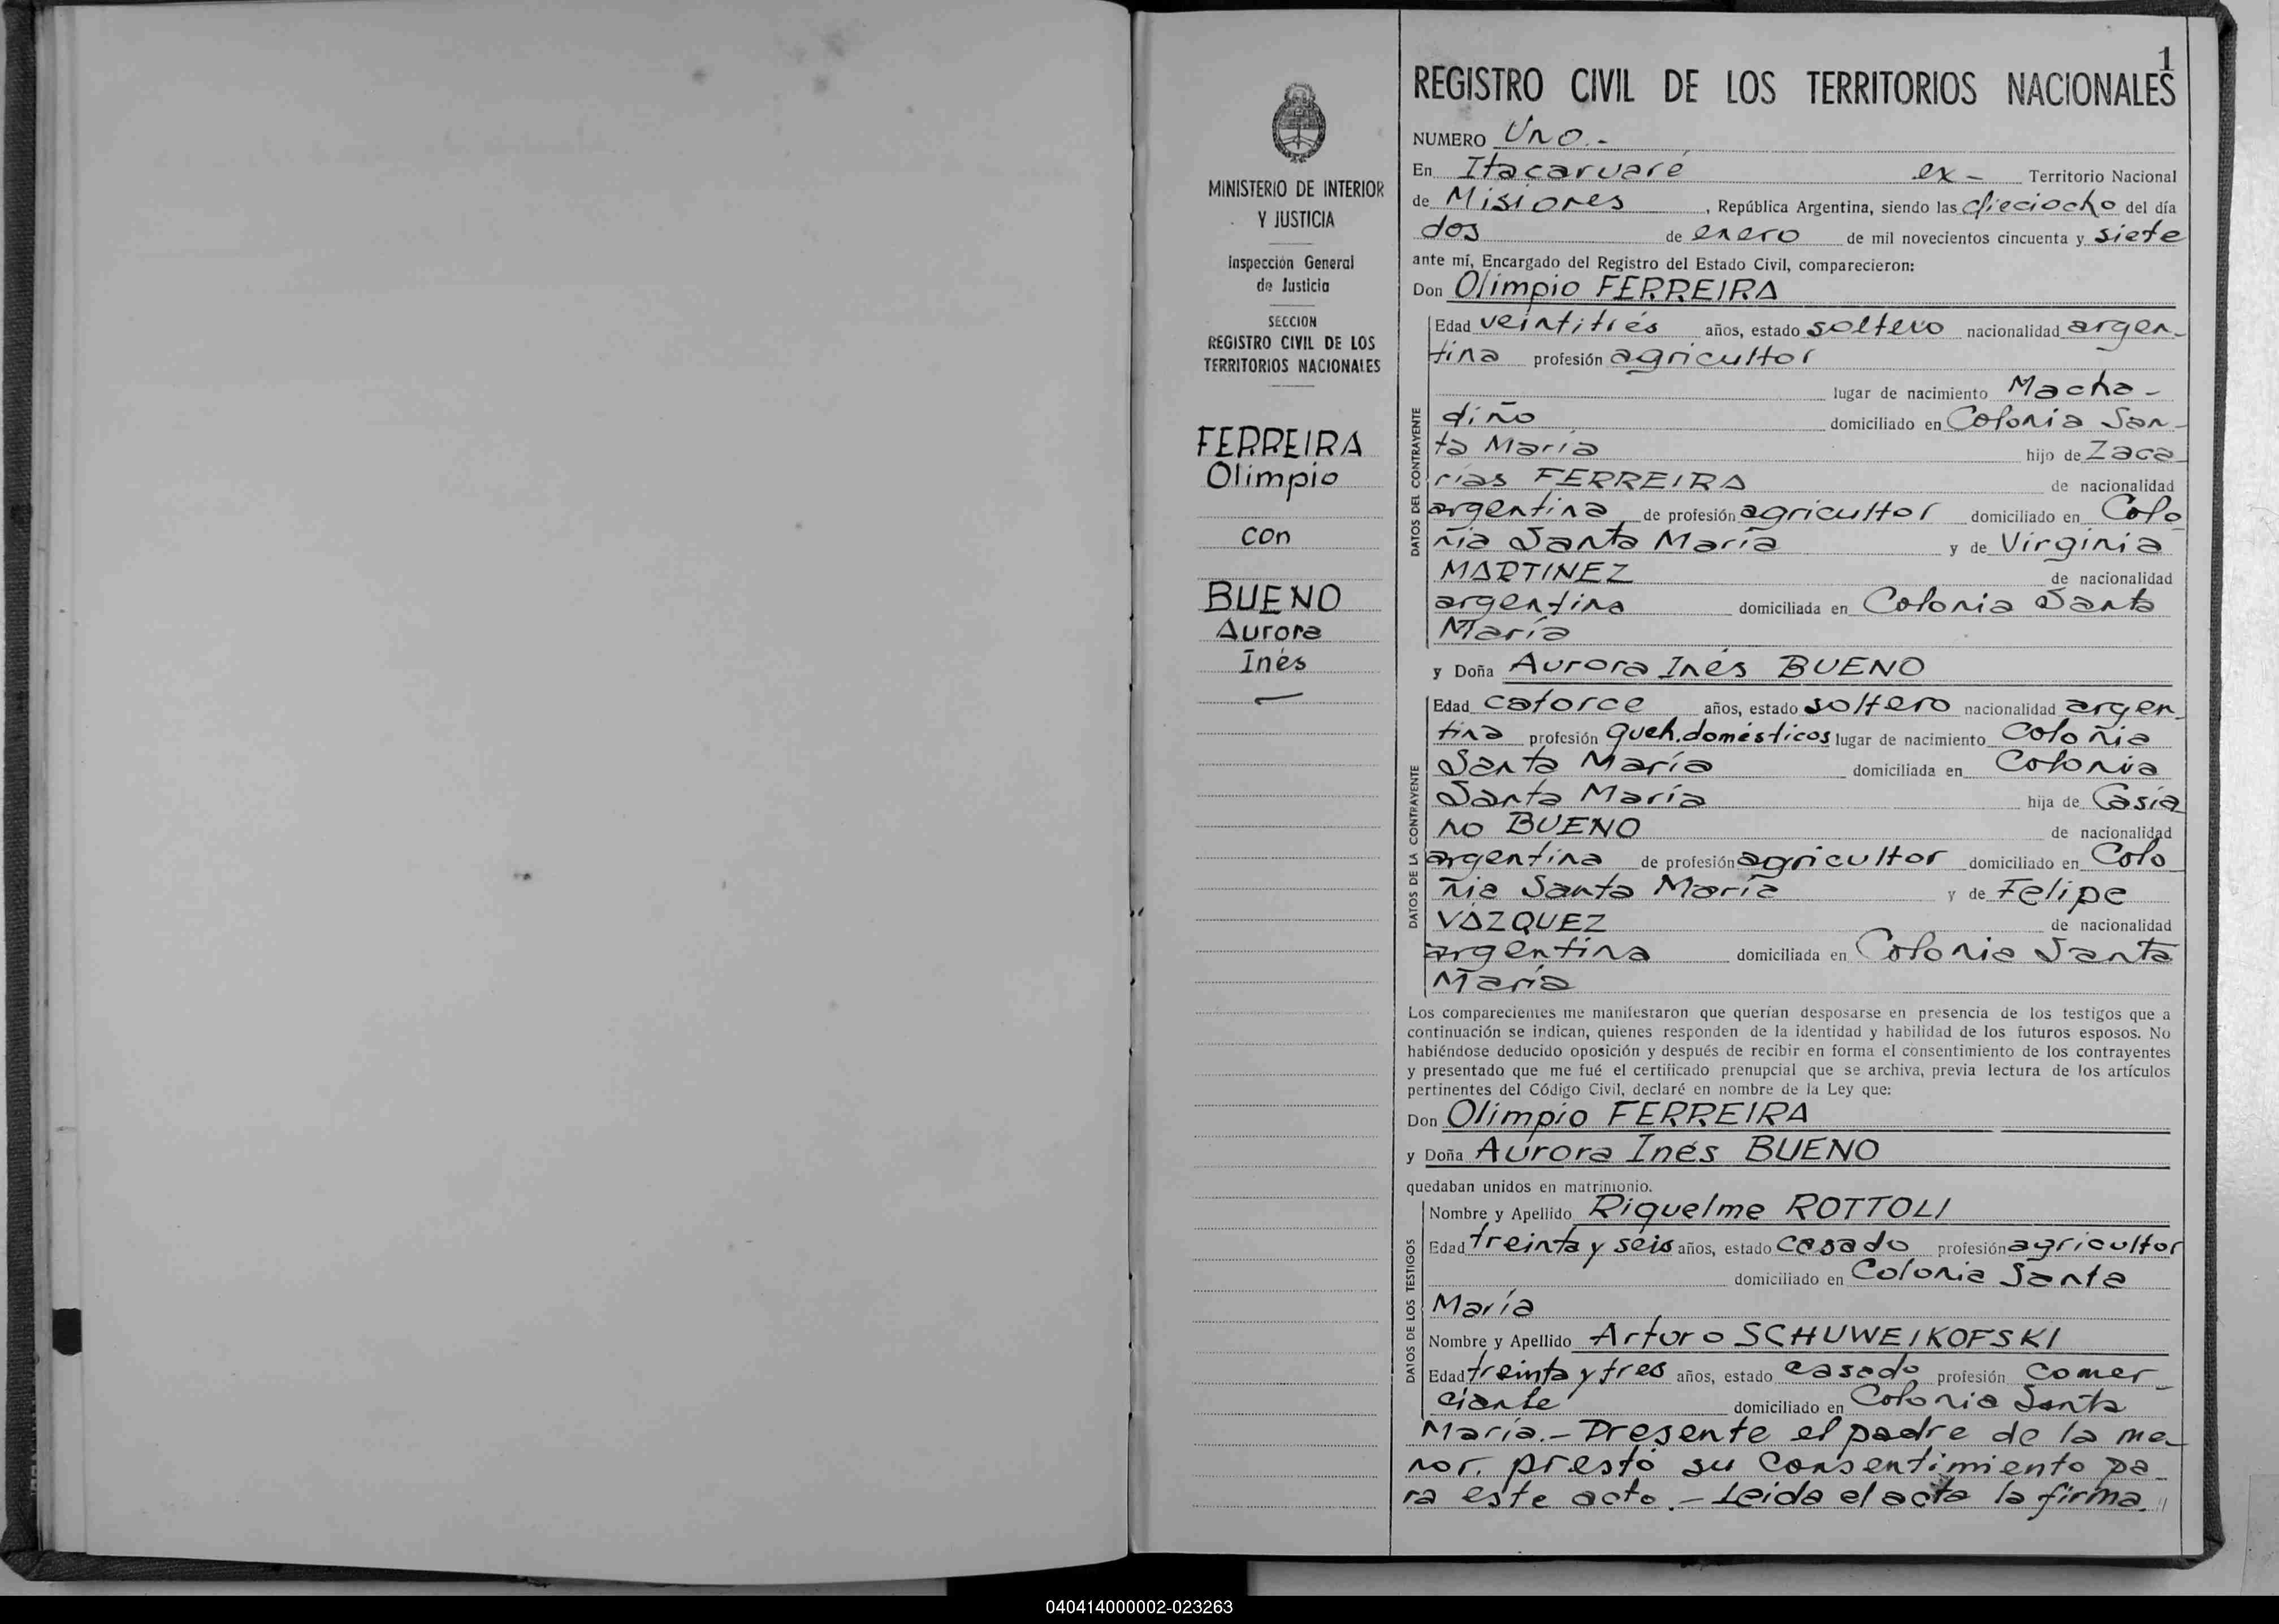 MINISTERIO DE INTERIOR
Y JUSTICIA
Inspección General
de Justicia
SECCION
REGISTRO CIVIL DE LOS
TERRITORIOS NACIONALES
FERREIRA
Olimpio
con
BUENO
Aurora
Inés
1
REGISTRO CIVIL DE LOS TERRITORIOS NACIONALES
NUMERO Uno.-
En Itacaruaré ex- Territorio Nacional
de Misiones, República Argentina, siendo las dieciocho del día
dos de enero de mil novecientos cincuenta y siete
ante mí, Encargado del Registro del Estado Civil, comparecieron:
Don Olimpio FERREIRA
DATOS DEL CONTRAYENTE
Edad veintitrés años, estado soltero nacionalidad argen-
tina profesión agricultor
lugar de nacimiento Macha-
diño domiciliado en Colonia San-
ta María hijo de Zaca
rías FERREIRA de nacionalidad
argentina de profesión agricultor domiciliado en Colo
nia Santa María y de Virginia
MARTINEZ de nacionalidad
argentina domiciliada en Colonia Santa
María
y Doña Aurora Inés BUENO
DATOS DE LA CONTRAYENTE
Edad catorce años, estado soltero nacionalidad argen-
tina profesión Queh.domésticos lugar de nacimiento Colonia
Santa María domiciliada en Colonia
Santa María hija de Casia
no BUENO de nacionalidad
argentina de profesión agricultor domiciliado en Colo
nia Santa María y de Felipe
VÁZQUEZ de nacionalidad
argentina domiciliada en Colonia Santa
María
Los comparecientes me manifestaron que querían desposarse en presencia de los testigos que a
continuación se indican, quienes responden de la identidad y habilidad de los futuros esposos. No
habiéndose deducido oposición y después de recibir en forma el consentimiento de los contrayentes
y presentado que me fué el certificado prenupcial que se archiva, previa lectura de los artículos
pertinentes del Código Civil, declaré en nombre de la Ley que:
Don Olimpio FERREIRA
y Doña Aurora Inés BUENO
quedaban unidos en matrimonio.
DATOS DE LOS TESTIGOS
Nombre y Apellido Riquelme ROTTOLI
Edad treinta y seis años, estado casado profesión agricultor
domiciliado en Colonia Santa
María
Nombre y Apellido Arturo SCHUWEIKOFSKI
Edad treinta y tres años, estado casado profesión comer-
ciante domiciliado en Colonia Santa
María.- Presente el padre de la me-
nor, prestó su consentimiento pa-
ra este acto.- Leida el acta la firma //
040414000002-023263